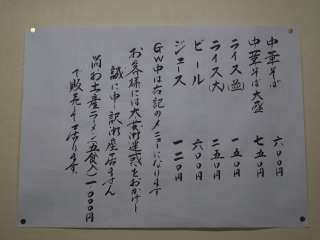 中華そば 六〇〇円
中華そば大盛 七五〇円
ライス(並) 一五〇円
ライス(大) 二五〇円
ビール 六〇〇円
ジュース 一二〇円
GW中は右記のメニューになります
お客様には大変御迷惑をおかけし
誠に申し訳御座居ません
尚お土産ラーメン(五食入)一〇〇〇円
で販売して居ります。